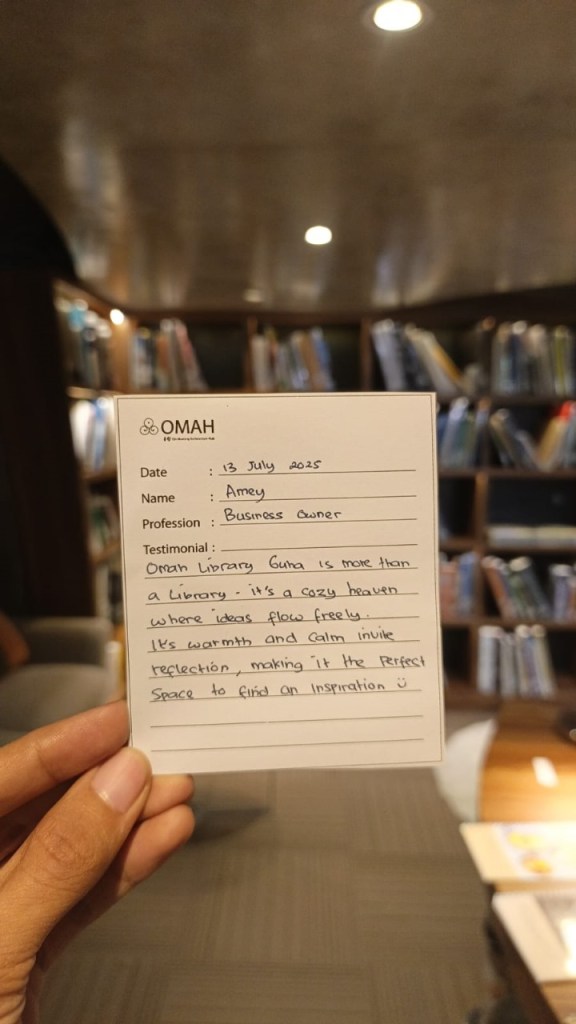 OMAH
Date : 13 July 2025
Name : Amey
Profession : Business Owner
Testimonial :
Omah Library Guha is more than
a Library - it's a cozy heaven
where ideas flow freely.
It's warmth and calm invite
reflection, making it the Perfect
Space to find an inspiration ☺